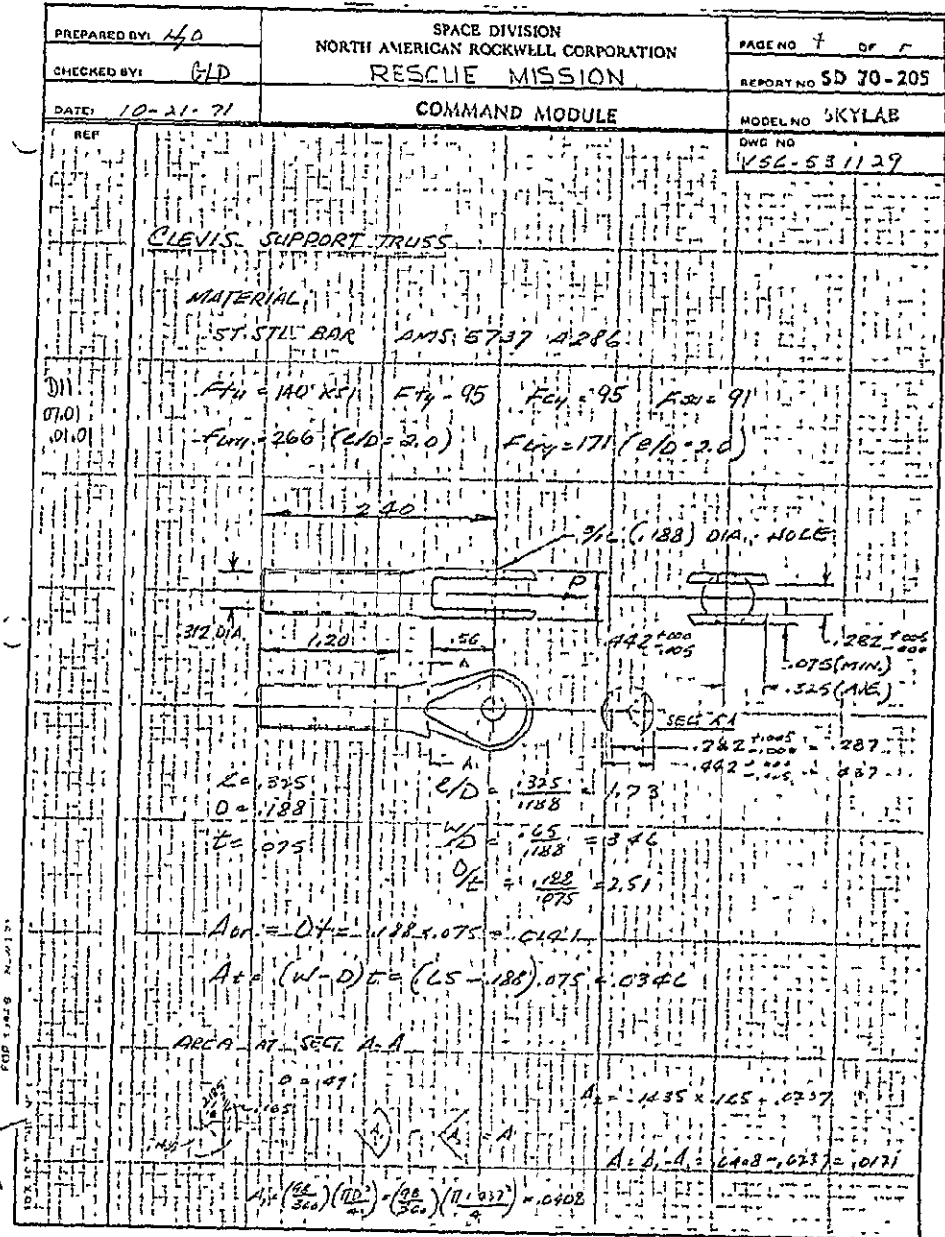 PREPARED BY:
CHECKED BY: GLD
DATE: 10-21-71
SPACE DIVISION
NORTH AMERICAN ROCKWELL CORPORATION
RESCUE MISSION
COMMAND MODULE
PAGE NO OF
REPORT NO SD 70-205
MODEL NO SKYLAB
DWG NO
V56-531129
REF
CLEVIS SUPPORT TRUSS
MATERIAL
ST. STL BAR AMS 5737 A286
D11
07.01
.01.01
Ftu = 140 KSI Fty = 95 Fcy = 95 Fsu = 91
Fbru = 266 (e/D = 2.0) Fbry = 171 (e/D = 2.0)
2.40
3/16 (.188) DIA. HOLE
P
.312 DIA.
1.20
.56
.442 +.000 -.005
.282 +.005 -.000
.075 (MIN.)
.325 (AVE.)
A
SECT A-A
.282 +.005 -.000 = .287
.442 +.000 -.005 = .437
A
e = .325
e/D = .325/.188 = 1.73
D = .188
t = .075
W/D = .65/.188 = 3.46
D/t = .188/.075 = 2.51
Abr = Dt = .188 x .075 = .0141
At = (W-D)t = (.65 - .188).075 = .0346
AREA AT SECT. A-A
A = A1 - A2 = .0408 - .0237 = .0171